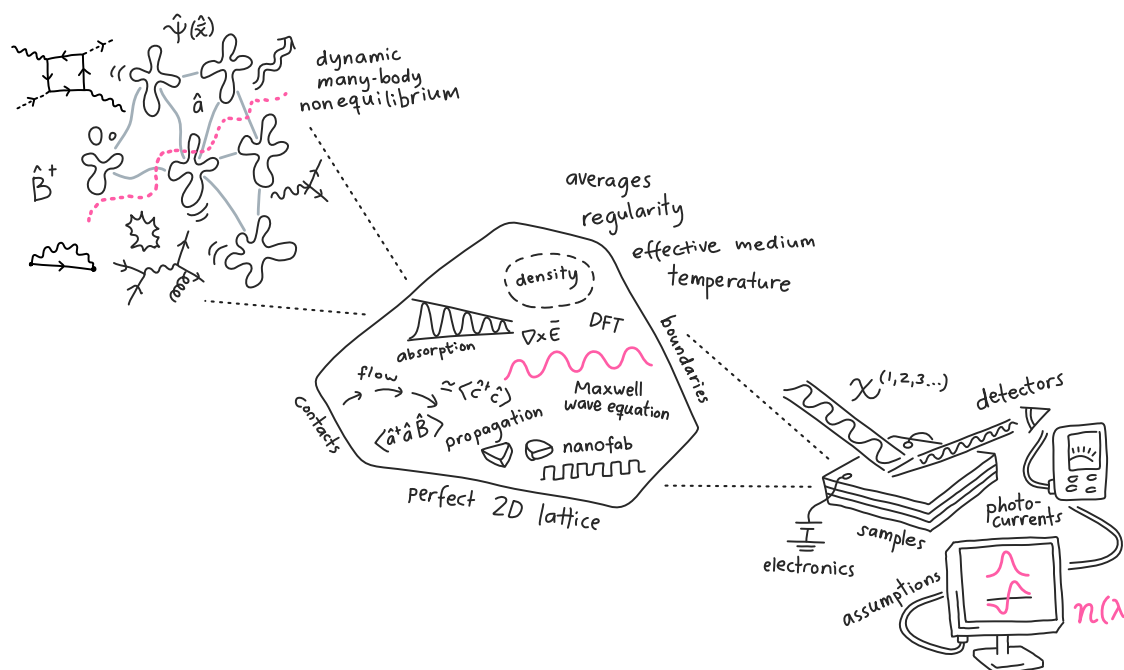 ψ̂(x̂)
dynamic
many-body
nonequilibrium
â
B̂⁺
averages
regularity
effective medium
temperature
density
absorption
∇×Ē
DFT
boundaries
flow
≃⟨ĉ⁺ĉ⟩
Maxwell
wave equation
contacts
⟨â⁺âB̂⟩
propagation
nanofab
perfect 2D lattice
χ(1,2,3...)
detectors
samples
photo-
currents
electronics
assumptions
n(λ